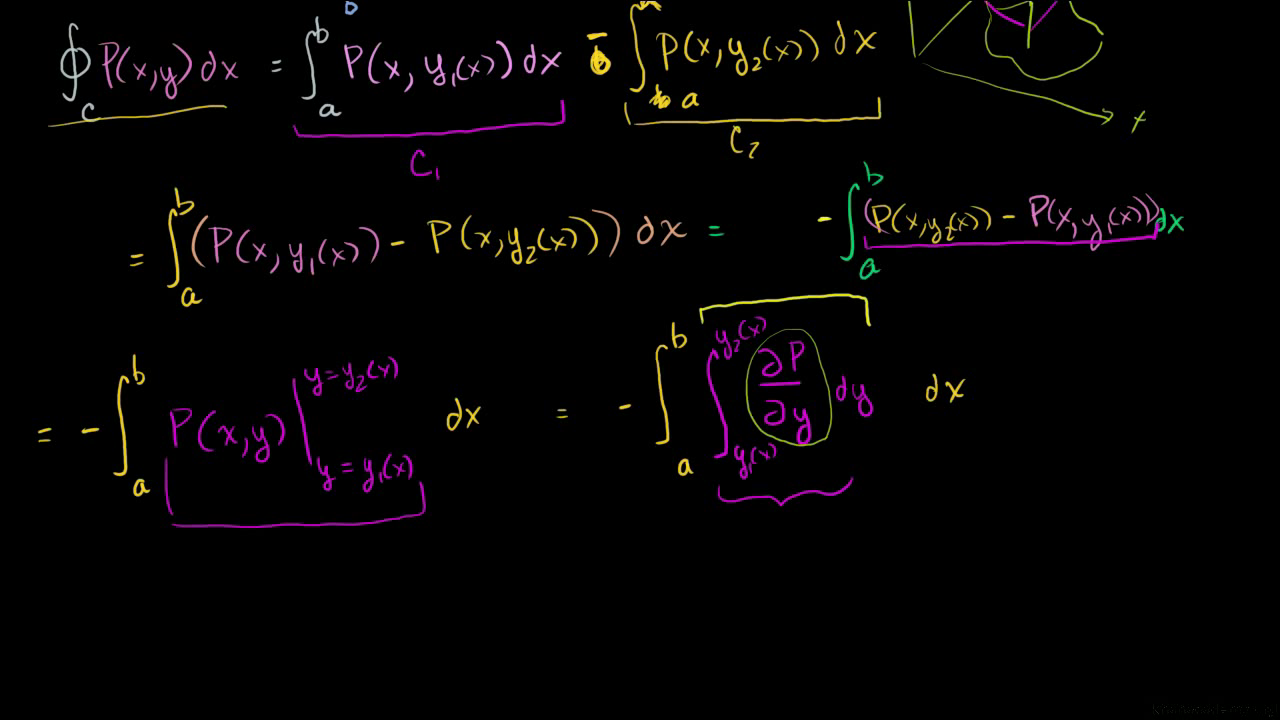 ∮_C P(x,y) dx = ∫_a^b P(x, y₁(x)) dx - ∫_a P(x, y₂(x)) dx
C₁ C₂ x
= ∫_a^b (P(x, y₁(x)) - P(x, y₂(x))) dx = - ∫_a^b (P(x, y₂(x)) - P(x, y₁(x))) dx
= - ∫_a^b P(x,y) |_{y = y₁(x)}^{y = y₂(x)} dx = - ∫_a^b ∫_{y₁(x)}^{y₂(x)} ∂P/∂y dy dx